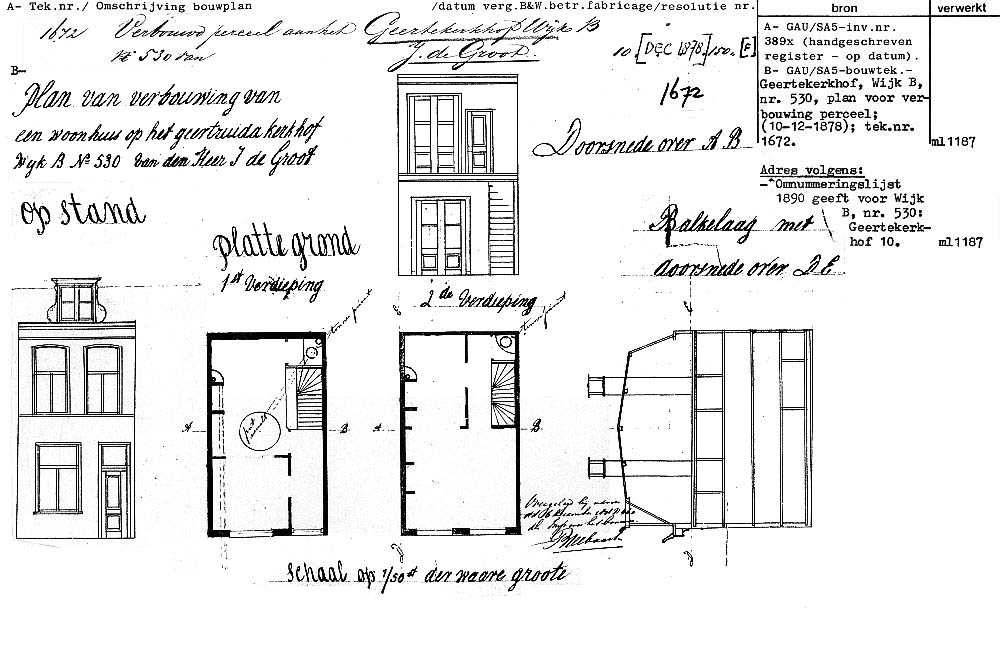 A- Tek.nr./ Omschrijving bouwplan /datum verg.B&W.betr.fabricage/resolutie nr. bron verwerkt
1672 Verbouwd perceel aan het Geertekerkhof Wijk B
No 530 van J. de Groot
10.[DEC 1878.]150.[F]
1672
A- GAU/SA5-inv.nr.
389x (handgeschreven
register - op datum).
B- GAU/SA5-bouwtek.-
Geertekerkhof, Wijk B,
nr. 530, plan voor ver-
bouwing perceel;
(10-12-1878); tek.nr.
1672. ml1187
Adres volgens:
- Omnummeringslijst
1890 geeft voor Wijk
B, nr. 530:
Geertekerk-
hof 10. ml1187
B-
Plan van verbouwing van
een woonhuis op het geertruida kerkhof
Wyk B No 530 van den Heer J de Groot
Doorsnede over A B
op stand
platte grond
1st Verdieping
2de Verdieping
Balkelaag met
doorsnede over D E
A B A B
schaal op 1/50st der waare groote